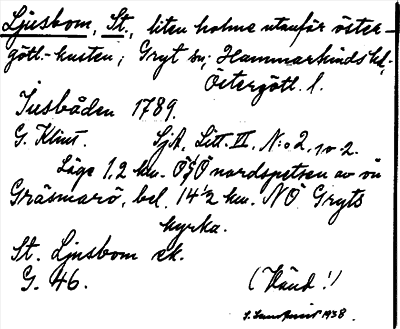 Ljusbom, St., liten holme utanför öster-
götl.-kusten; Gryt sn; Hammarkinds hd,
Östergötl. l.
Jusbåden 1789.
G. Klint. SjA. Litt. VI, N:o 2, 
Läge 1,2 km. ÖSÖ nordspetsen av ön
Gräsmarö, bel. 14 1/2 km. NÖ Gryts
kyrka.
St. Ljusbom ek.
G. 46. (Känd!)
1938